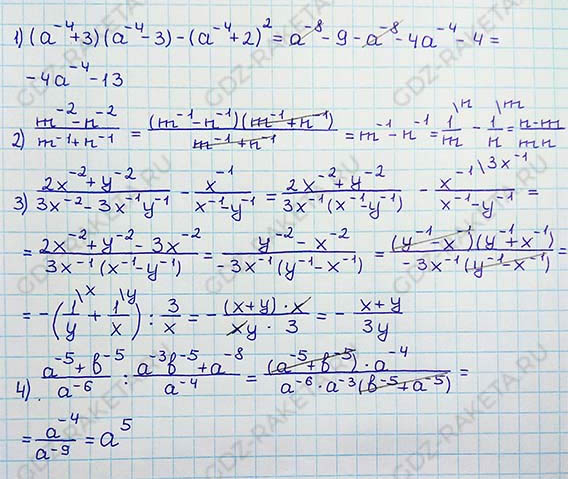 1) (a⁻⁴+3)(a⁻⁴-3)-(a⁻⁴+2)² = a⁻⁸-9-a⁻⁸-4a⁻⁴-4 =
-4a⁻⁴-13
2) (m⁻²-n⁻²)/(m⁻¹+n⁻¹) = ((m⁻¹-n⁻¹)(m⁻¹+n⁻¹))/(m⁻¹+n⁻¹) = m⁻¹-n⁻¹ = 1/m \n - 1/n \m = (n-m)/(mn)
3) (2x⁻²+y⁻²)/(3x⁻²-3x⁻¹y⁻¹) - x⁻¹/(x⁻¹-y⁻¹) = (2x⁻²+y⁻²)/(3x⁻¹(x⁻¹-y⁻¹)) - x⁻¹ \3x⁻¹/(x⁻¹-y⁻¹) =
= (2x⁻²+y⁻²-3x⁻²)/(3x⁻¹(x⁻¹-y⁻¹)) = (y⁻²-x⁻²)/(-3x⁻¹(y⁻¹-x⁻¹)) = ((y⁻¹-x⁻¹)(y⁻¹+x⁻¹))/(-3x⁻¹(y⁻¹-x⁻¹)) =
= -(1/y \x + 1/x \y) : 3/x = -((x+y)·x)/(xy·3) = -(x+y)/(3y)
4) (a⁻⁵+b⁻⁵)/a⁻⁶ : (a⁻³b⁻⁵+a⁻⁸)/a⁻⁴ = ((a⁻⁵+b⁻⁵)·a⁻⁴)/(a⁻⁶·a⁻³(b⁻⁵+a⁻⁵)) =
= a⁻⁴/a⁻⁹ = a⁵
GDZ-RAKETA.RU